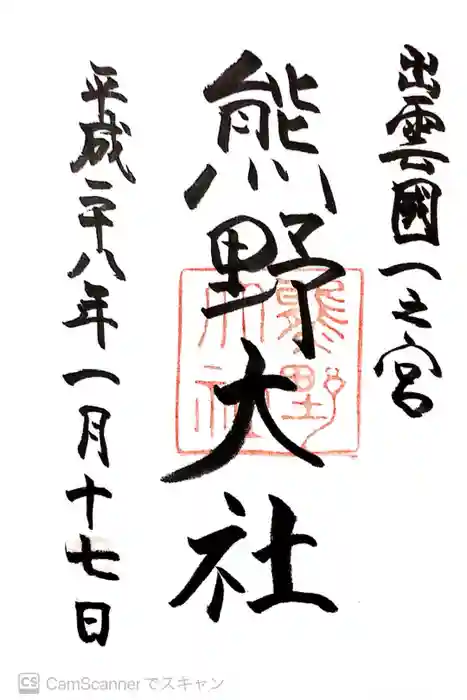 出雲國一之宮
熊野大社
熊野大社
平成二十八年一月十七日
CS CamScannerでスキャン